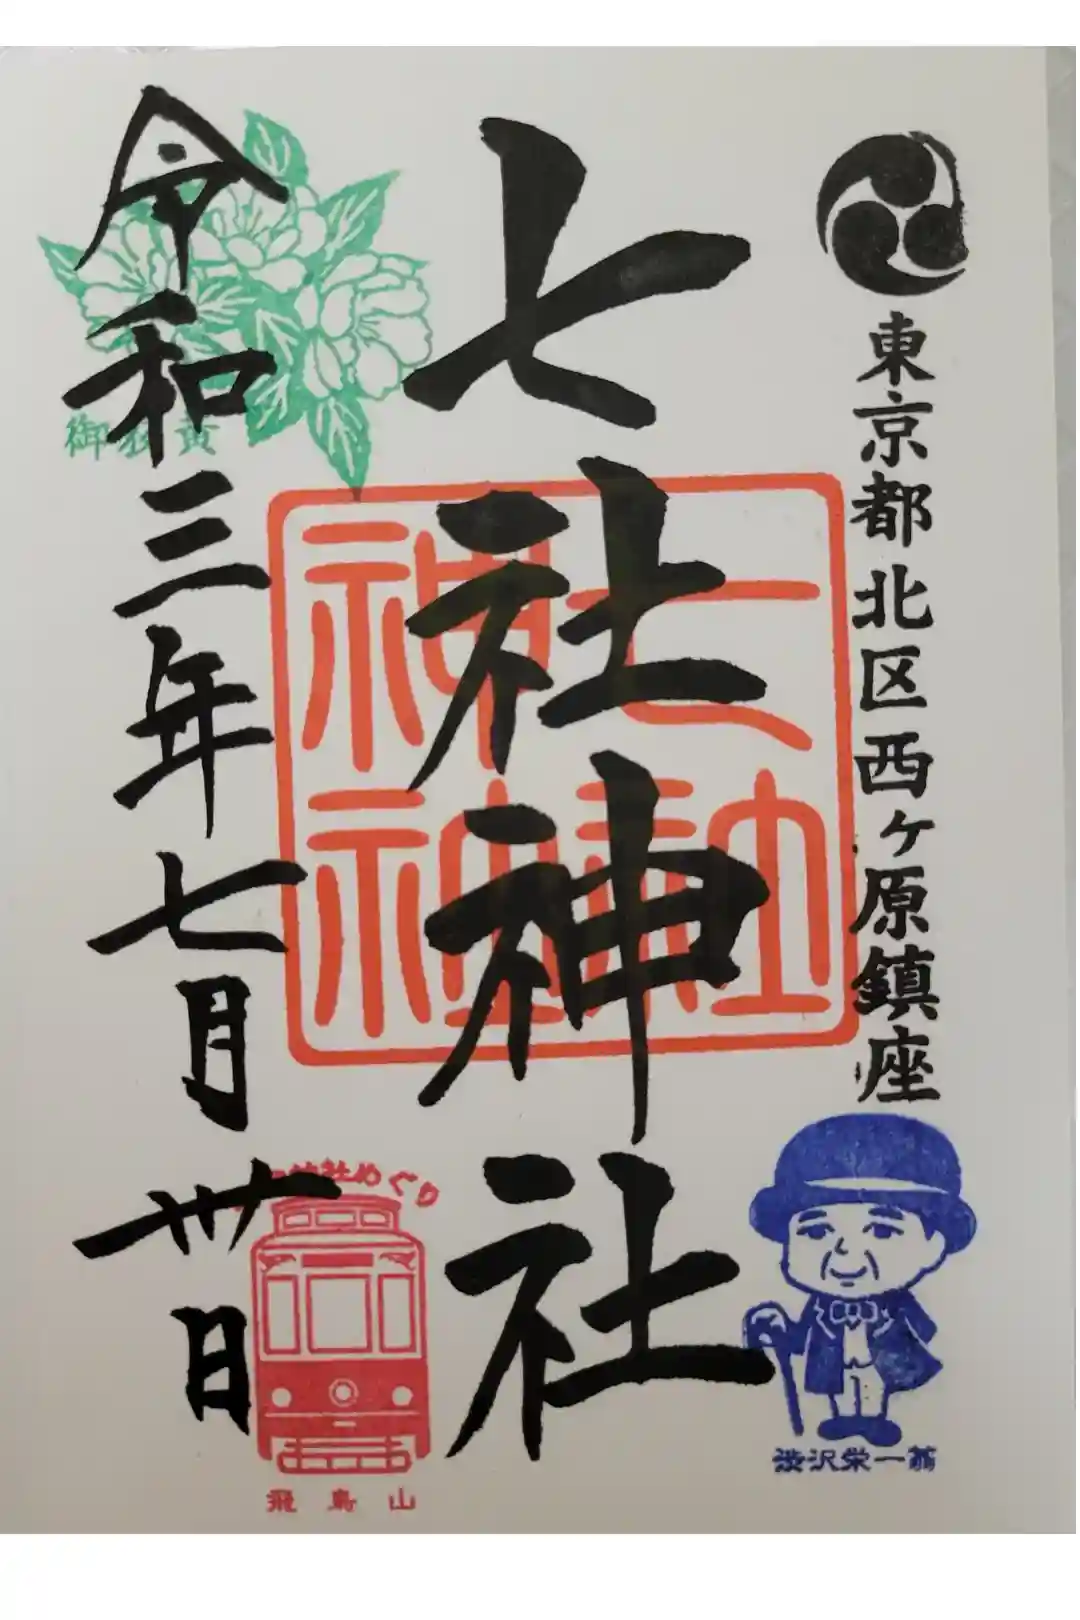 東京都北区西ヶ原鎮座
渋沢栄一翁
七社神社
七社
神社
令和三年七月卅日
御衣黄
神社めぐり
飛鳥山